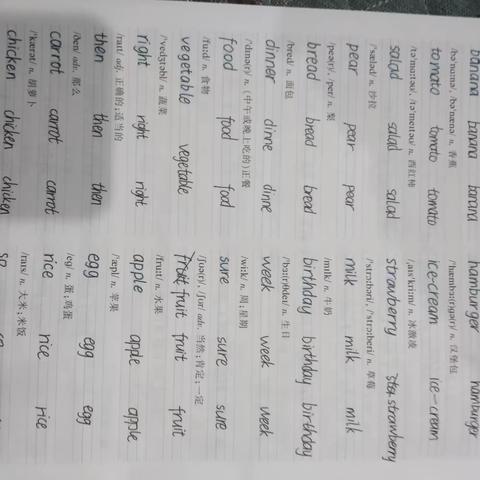 banana banana banana
/bə'nɑːnə/, /bə'nænə/ n. 香蕉
tomato tomato tomato
/tə'mɑːtəʊ/, /tə'meɪtəʊ/ n. 西红柿
salad salad salad
/'sæləd/ n. 沙拉
pear pear pear
/peə(r)/, /per/ n. 梨
bread bread bread
/bred/ n. 面包
dinner dinne dinne
/'dɪnə(r)/ n. (中午或晚上吃的)正餐
food food food
/fuːd/ n. 食物
vegetable vegetable
/'vedʒtəbl/ n. 蔬菜
right right right
/raɪt/ adj. 正确的;适当的
then then then
/ðen/ adv. 那么
carrot carrot carrot
/'kærət/ n. 胡萝卜
chicken chicken chicken
hamburger hamburger
/'hæmbɜː(r)gə(r)/ n. 汉堡包
ice-cream ice-cream
/ˌaɪs'kriːm/ n. 冰激凌
strawberry strawberry
/'strɔːbəri/, /'strɔːberi/ n. 草莓
milk milk milk
/mɪlk/ n. 牛奶
birthday birthday birthday
/'bɜː(r)θdeɪ/ n. 生日
week week week
/wiːk/ n. 周;星期
sure sure sure
/ʃʊə(r)/, /ʃʊr/ adv. 当然;肯定;一定
fruit fruit fruit fruit
/fruːt/ n. 水果
apple apple apple
/'æpl/ n. 苹果
egg egg egg
/eg/ n. 蛋;鸡蛋
rice rice rice
/raɪs/ n. 大米;米饭